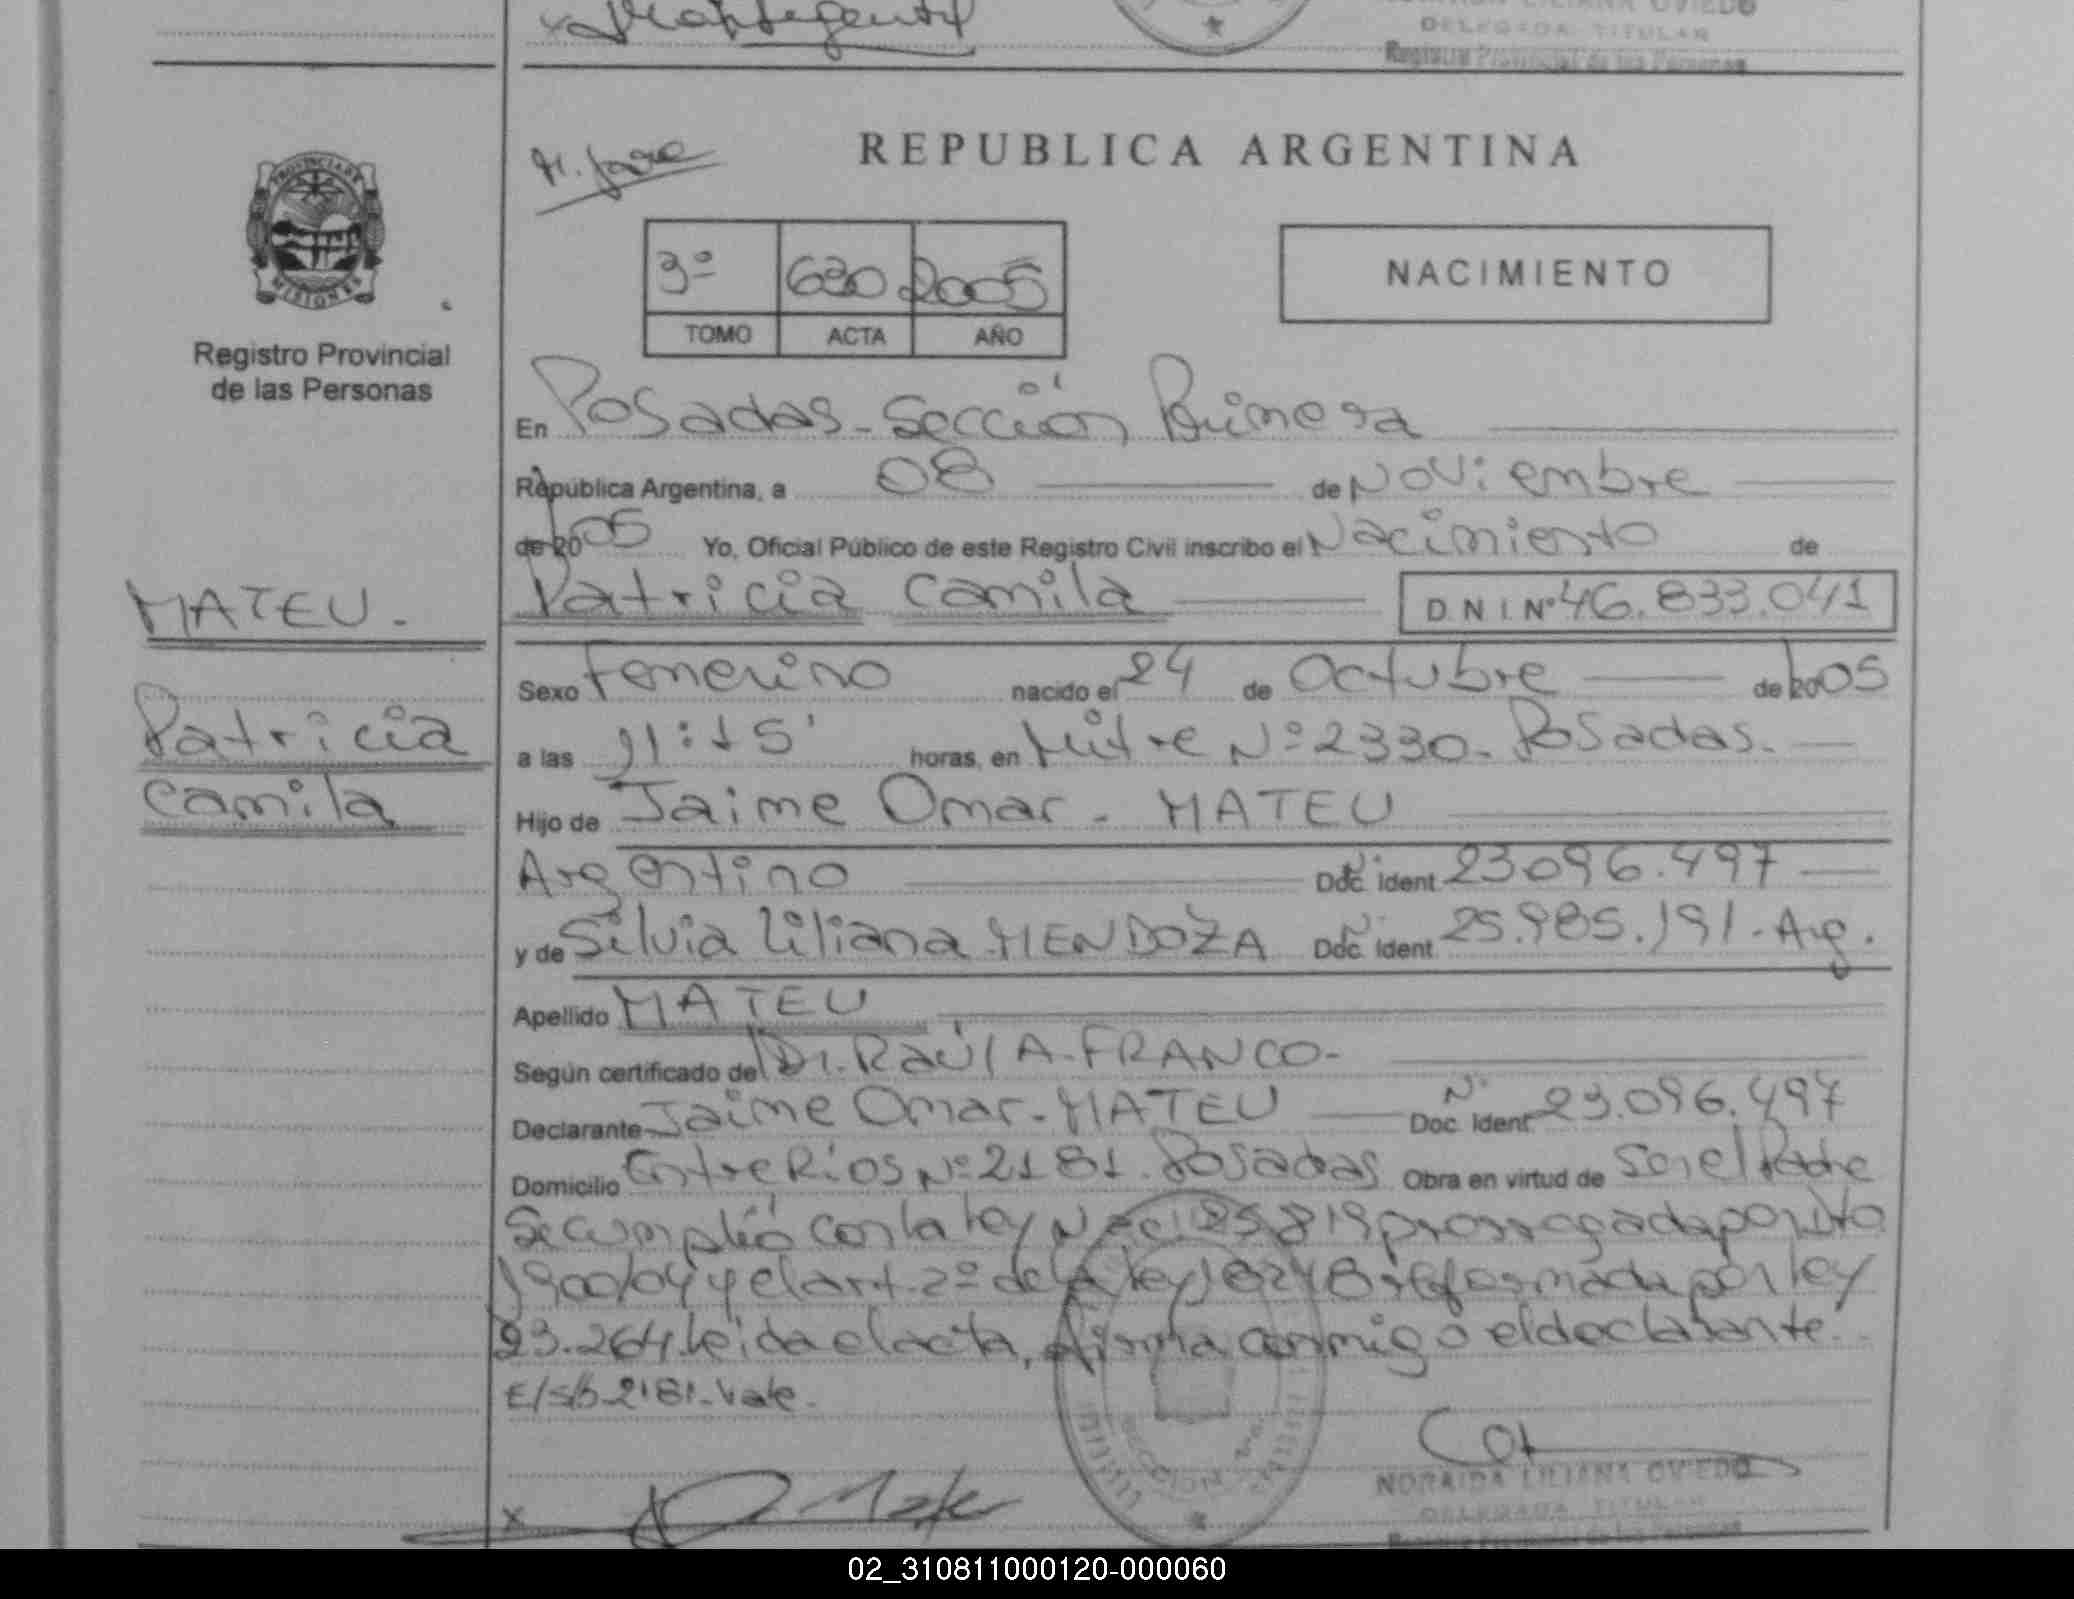 NORAIDA LILIANA OVIEDO
DELEGADA TITULAR
Registro Provincial de las Personas
PROVINCIA DE
MISIONES
Registro Provincial
de las Personas
REPUBLICA ARGENTINA
3º 630 2005
TOMO ACTA AÑO
NACIMIENTO
En Posadas - Sección Primera
República Argentina, a 08 de Noviembre
de 2005 Yo, Oficial Público de este Registro Civil inscribo el Nacimiento de
Patricia Camila D.N.I. Nº 46.833.041
MATEU.
Patricia
Camila
Sexo Femenino nacido el 24 de Octubre de 2005
a las 11:15' horas, en Mitre Nº 2330 - Posadas.
Hijo de Jaime Omar - MATEU
Argentino Doc. Ident. 23.096.497
y de Silvia Liliana MENDOZA Doc. Ident. 25.985.191 - Arg.
Apellido MATEU
Según certificado de Dr. RAÚL A. FRANCO -
Declarante Jaime Omar - MATEU Nº Doc. Ident. 23.096.497
Domicilio Entre Ríos Nº 2181. Posadas Obra en virtud de Ser el Padre
Se cumplió con la ley Nac. 25.819 prorrogada por Dto
1900/04 y el art. 2º de la ley 18248 reformada por ley
23.264. Leída el acta, firma conmigo el declarante.
E/S/B 2181 - Vale.
SECCION 1ra.
x Mateu
NORAIDA LILIANA OVIEDO
DELEGADA TITULAR
Registro Provincial de las Personas
02_310811000120-000060